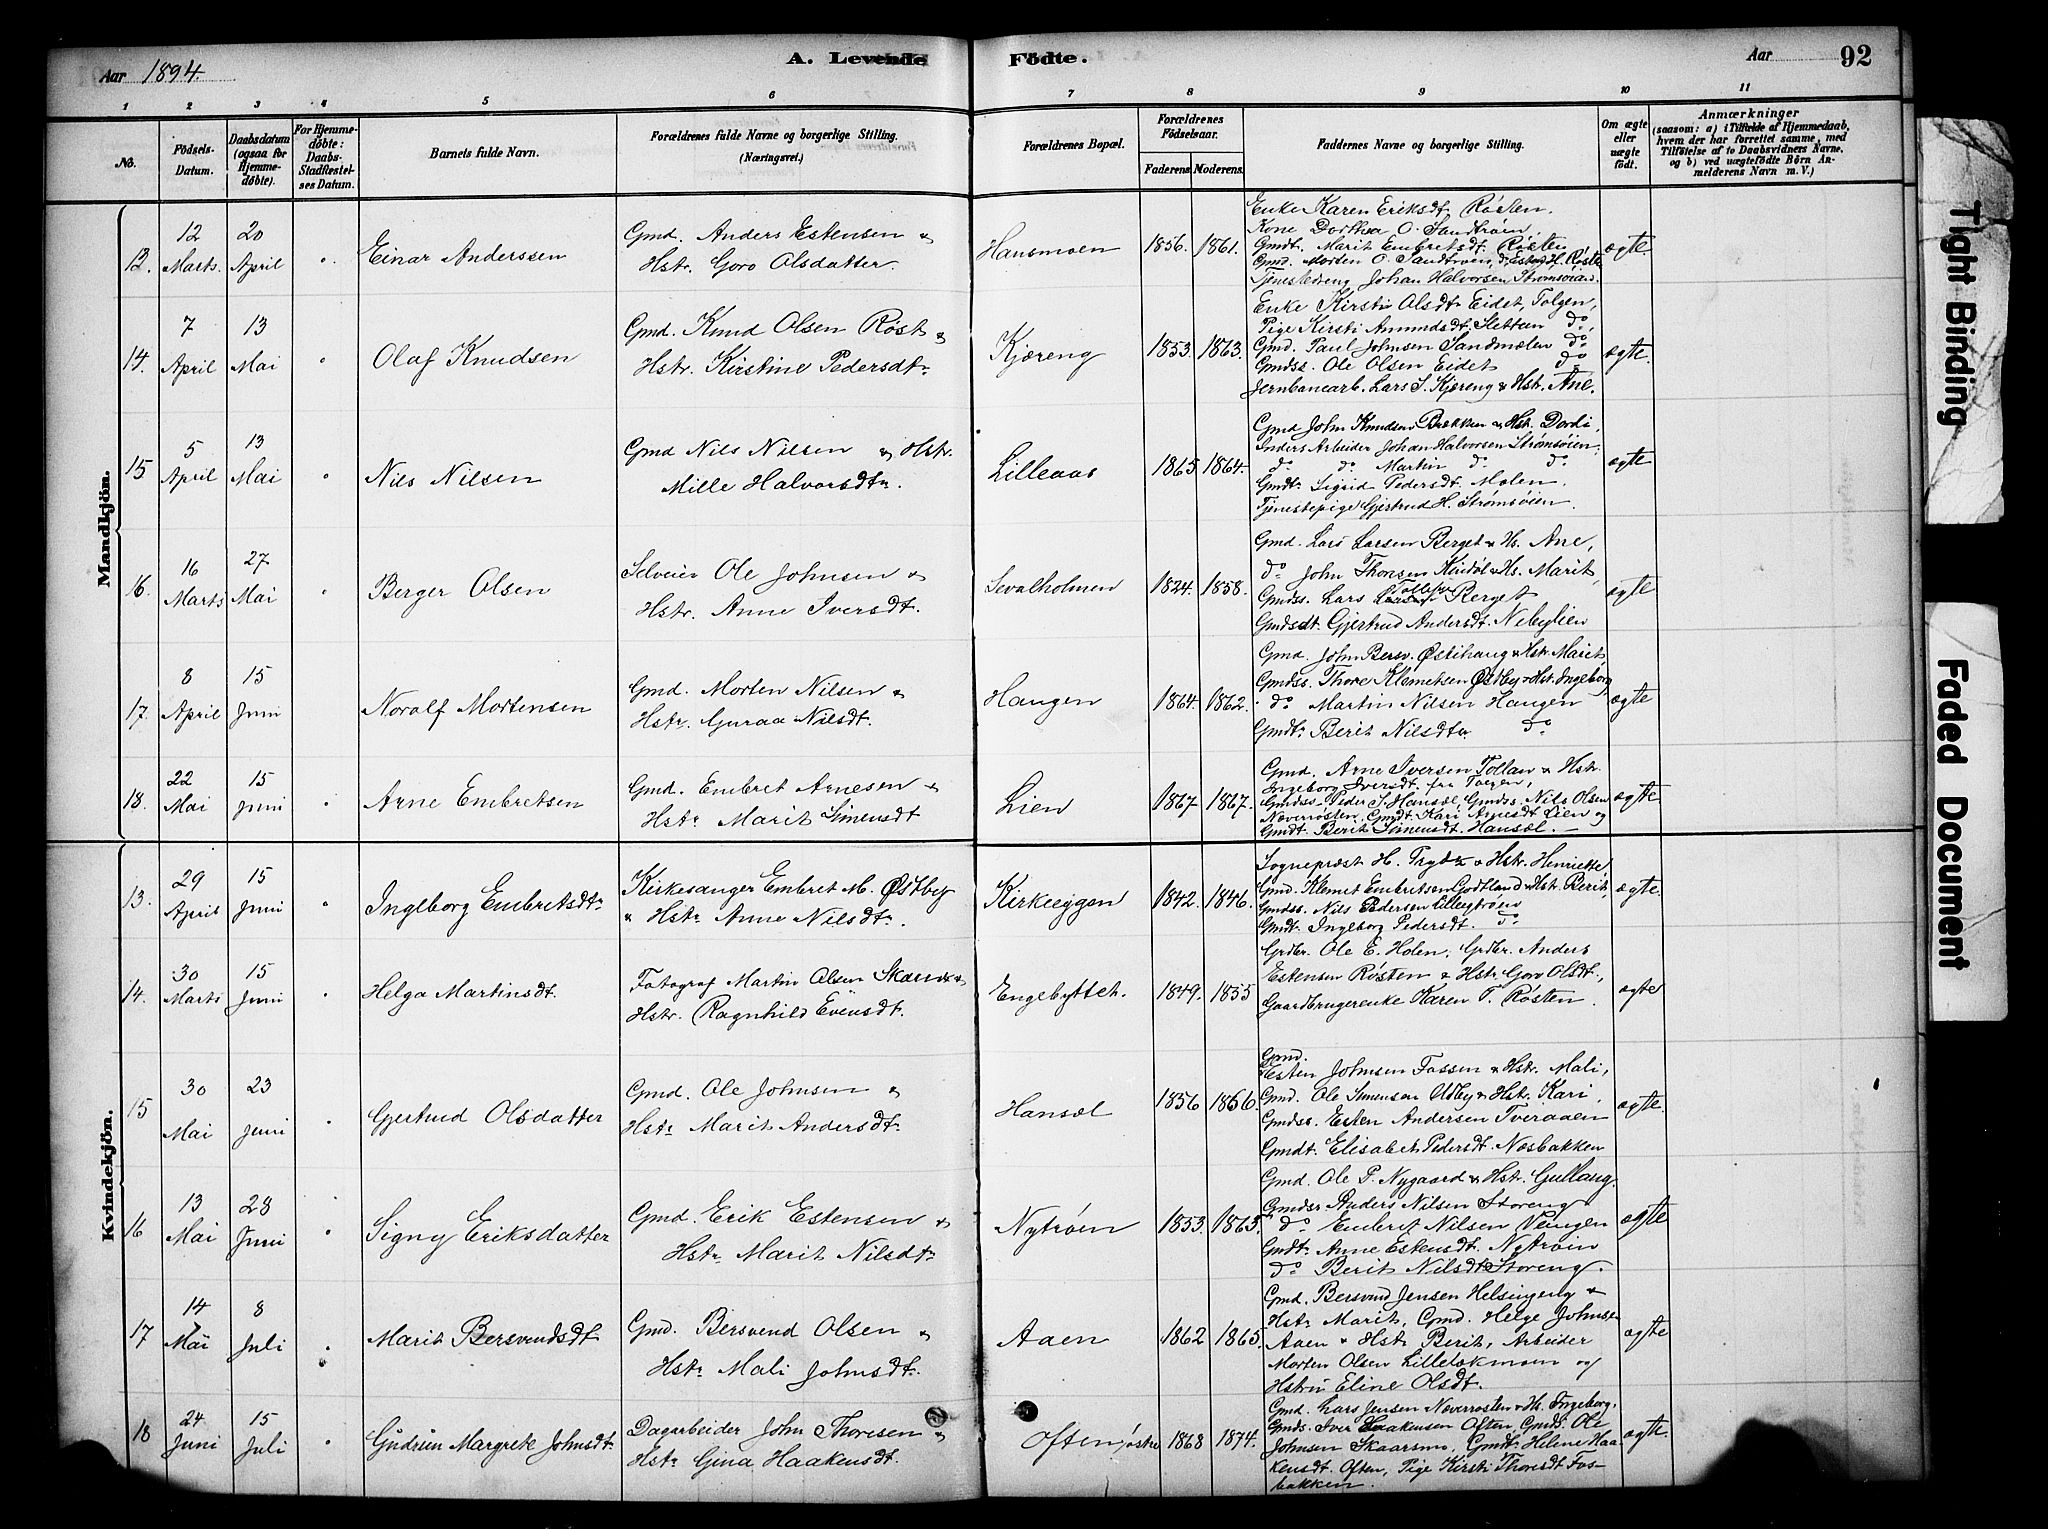 Aar 1894.
A. Levende Födte.
Aar
92
1 2 3 4 5 6 7 8 9 10 11
No.
Födsels-Datum.
Daabsdatum (ogsaa for Hjemme-döbte).
For Hjemme-döbte: Daabs-Stadfæstel-ses Datum.
Barnets fulde Navn.
Forældrenes fulde Navne og borgerlige Stilling. (Næringsvei.)
Forældrenes Bopæl.
Forældrenes Födselsaar.
Faderens. Moderens.
Faddernes Navne og borgerlige Stilling.
Om ægte eller uægte födt.
Anmærkninger
(saasom: a) i Tilfælde af Hjemmedaab, hvem der har forrettet samme, med Tilföielse af to Daabsvidners Navne, og b) ved uægtefödte Börn Anmelderens Navn m. V.)
Mandkjön.
13. 12 Marts. 20 April
Einar Anderssen
Gmd. Anders Estensen &
Hstr. Goro Olsdatter.
Hansmoen 1856. 1861.
Enke Karen Eriksdt. Røsten.
Kone Dorthea O. Sandtrøen,
Gmdt. Marit Embretsdt. Røsten
Gmd. Morten O. Sandtrøen, do Esten H. Røste
Tjenestedreng Johan Halvorsen Strømsøien.
ægte.
14. 7 April 13 Mai
Olaf Knudsen
Gmd. Knud Olsen Røst &
Hstr. Kirstine Pedersdt.
Kjæreng 1853. 1863.
Enke Kirsti Olsdtr. Eidet, Tolgen,
Pige Kirsti Amundsdt. Sletten do,
Gmd. Paul Johnsen Sandmælen do
Gmdss. Ole Olsen Eidet do
Jernbanearb. Lars J. Kjæreng & Hstr. Ane.
ægte.
15 5 April 13 Mai
Nils Nilsen
Gmd Nils Nilsen & Hstr.
Mille Halvorsdtr.
Lilleaas 1865 1864.
Gmd John Knudsen Brækken & Hstr. Dordi,
Inders Arbeider Johan Halvorsen Strømsøien,
do do Martin do do
Gmdtr. Sigrid Pedersdt. Molen.
Tjenestepige Gjertrud H. Strømsøien.
ægte
16. 16 Marts 27 Mai
Berger Olsen
Selveier Ole Johnsen &
Hstr. Anne Iversdt.
Sevalholmen 1824. 1858.
Gmd. Lars Larsen Berget & Hs. Ane,
do John Thorsen Kindøl & Hs. Marit,
Gmdss. Lars Tollefs. Berget
Gmdsdt. Gjertrud Andersdt. Nebylien
ægte
17. 8 April 15 Juni
Noralf Mortensen
Gmd. Morten Nilsen &
Hstr. Guraa Nilsdt.
Haugen 1864. 1862.
Gmd. John Bersv. Østihaug & Hstr. Marit,
Gmdss. Thore Klemetsen Østby & Hstr. Ingeborg,
do Martin Nilsen Haugen
Gmdt. Berit Nilsdtr. do
ægte
18. 22 Mai 15 Juni
Arne Embretsen
Gmd. Embret Arnesen &
Hstr. Marit Simensdt
Lien 1867 1867.
Gmd. Arne Iversen Tollan & Hstr.
Ingeborg Iversdt. fra Tolgen,
Gmdss. Peder S. Hansæl, Gmdss. Nils Olsen
Næverrøsten, Gmdt. Kari Arnesdt Lien og
Gmdt. Berit Simensdt. Hansæl. —
ægte
Kvindekjön.
13. 29 April 15 Juni
Ingeborg Embretsdtr.
Kirkesanger Embret M. Østby
& Hstr. Anne Nilsdtr.
Kirkeeggen 1842. 1846.
Sogneprest H. Trydtz & Hstr. Henriette,
Gmd. Klemet Embretsen Godtland & Hstr. Berit,
Gmdss. Nils Pedersen Lillegtrøen
Gmdt. Ingeborg Pedersdt. do
ægte.
14. 30 Marts 15 Juni
Helga Martinsdt.
Fotograf Martin Olsen Skancke &
Hstr. Ragnhild Evensdt.
Engebyttet. 1849. 1855
Grdbr. Ole E. Holen, Grdbr. Anders
Estensen Røsten & Hstr. Goro Olsdt.,
Gaardbrugerenke Karen T. Røsten.
ægte
15 30 Mai 23 Juni
Gjertrud Olsdatter
Gmd. Ole Johnsen &
Hstr. Marit Andersdt.
Hansæl 1856 1866.
Gmd.
Esten Johnsen Fossen & Hstr. Mali,
Gmd. Ole Simensen Udby & Hstr. Kari,
Gmdss. Esten Andersen Tveraaen
Gmdt. Elisabet Pedersdt. Næsbakken
ægte.
16 13 Mai 28 Juni
Signy Eriksdatter
Gmd. Erik Estensen &
Hstr. Marit Nilsdtr.
Nytrøen 1853. 1863.
Gmd. Ole P. Nygaard & Hstr. Gullaug.
Gmdss Anders Nilsen Storeng
do Embret Nilsen Vengen
Gmdtr. Anne Estensdt. Nytrøen
do Berit Nilsdt Storeng.
ægte
17 14 Mai 8 Juli
Marit Bersvendsdt
Gmd. Bersvend Olsen &
Hstr. Mali Johnsdt.
Aaen 1862 1865.
Gmd. Bersvend Jensen Helsingeng &
Hstr. Marit, Gmd. Helge Johnsen
Aaen & Hstr Berit, Arbeider
Morten Olsen Lilletækmoen og
Hstru Eline Olsdt.
ægte
18 24 Juni 15 Juli
Gudrun Margrete Johnsdt.
Dagarbeider John Thoresen &
Hstr. Gina Haakensdt.
Often østre 1868 1874.
Gmd. Lars Jensen Næverrosten & Hs. Ingeborg,
Gmds. Iver Haakensen Often, Gmds. Ole
Johnsen Skaarsmo, Gmdt. Helene Haa-
kensdt. Often, Pige Kirsti Thoresdt Fos-
bakken.
ægte.
Tight Binding
Faded Document